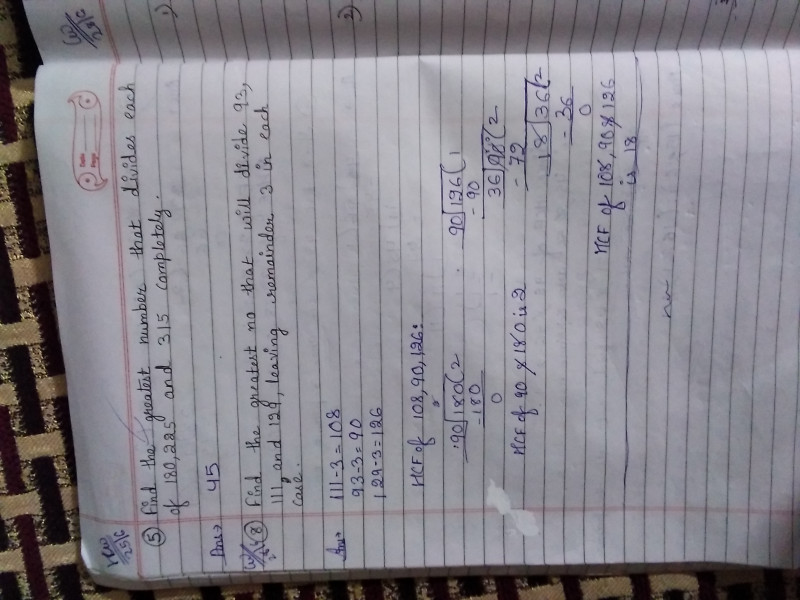 ⑤ Find the greatest number that divides each
of 180,225 and 315 completely.
Ans→ 45
⑧ Find the greatest no that will divide 93,
111 and 129, leaving remainder 3 in each
case.
Ans→ 111-3=108
93-3=90
129-3=126
HCF of 108,90,126:
90)180(2
-180
0
HCF of 90 & 180 is 2
90)126(1
-90
36)90(2
-72
18)36(2
-36
0
HCF of 108,90&126
is 18
1)
2)